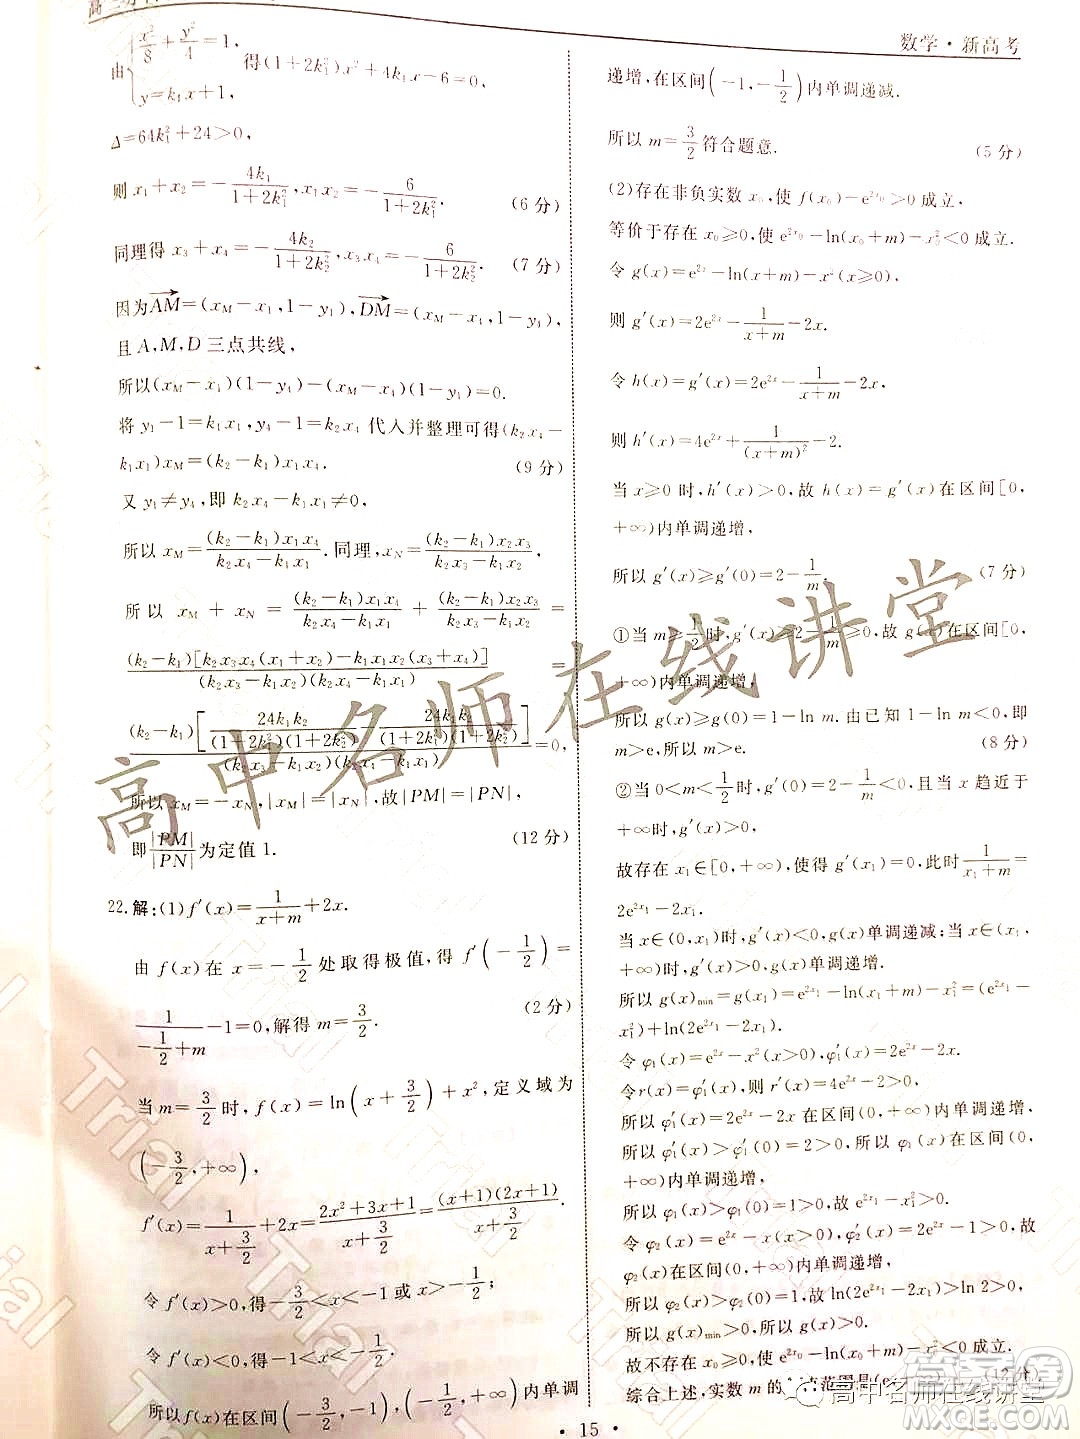 数学·新高考
由{x²/8+y²/4=1, y=k₁x+1, 得(1+2k₁²)x²+4k₁x-6=0,
Δ=64k₁²+24>0,
则 x₁+x₂=-4k₁/(1+2k₁²),x₁x₂=-6/(1+2k₁²). (6分)
同理得 x₃+x₄=-4k₂/(1+2k₂²),x₃x₄=-6/(1+2k₂²). (7分)
因为AM→=(x_M-x₁,1-y₁),DM→=(x_M-x₄,1-y₄),
且 A,M,D 三点共线,
所以(x_M-x₁)(1-y₄)-(x_M-x₄)(1-y₁)=0.
将 y₁-1=k₁x₁,y₄-1=k₂x₄ 代入并整理可得(k₂x₄-
k₁x₁)x_M=(k₂-k₁)x₁x₄. (9分)
又 y₁≠y₄,即 k₂x₄-k₁x₁≠0,
所以 x_M=(k₂-k₁)x₁x₄/(k₂x₄-k₁x₁).同理,x_N=(k₂-k₁)x₂x₃/(k₂x₃-k₁x₂),
所以 x_M + x_N = (k₂-k₁)x₁x₄/(k₂x₄-k₁x₁) + (k₂-k₁)x₂x₃/(k₂x₃-k₁x₂) =
(k₂-k₁)[k₂x₃x₄(x₁+x₂)-k₁x₁x₂(x₃+x₄)]/(k₂x₃-k₁x₂)(k₂x₄-k₁x₁) =
(k₂-k₁)[24k₁k₂/(1+2k₂²)(1+2k₁²)-24k₁k₂/(1+2k₁²)(1+2k₂²)]/(k₂x₃-k₁x₂)(k₂x₄-k₁x₁)=0,
所以 x_M=-x_N,|x_M|=|x_N|,故|PM|=|PN|,
即|PM|/|PN|为定值 1. (12分)
22.解:(1)f′(x)=1/(x+m)+2x.
由 f(x)在 x=-1/2处取得极值,得 f′(-1/2)=
1/(-1/2+m)-1=0,解得 m=3/2. (2分)
当 m=3/2时,f(x)=ln(x+3/2)+x²,定义域为
(-3/2,+∞),
f′(x)=1/(x+3/2)+2x=(2x²+3x+1)/(x+3/2)=(x+1)(2x+1)/(x+3/2).
令 f′(x)>0,得-3/2<x<-1或 x>-1/2;
令 f′(x)<0,得-1<x<-1/2.
所以 f(x)在区间(-3/2,-1),(-1/2,+∞)内单调
递增,在区间(-1,-1/2)内单调递减.
所以 m=3/2符合题意. (5分)
(2)存在非负实数 x₀,使 f(x₀)-e^(2x₀)>0 成立,
等价于存在 x₀≥0,使 e^(2x₀)-ln(x₀+m)-x₀²<0 成立.
令 g(x)=e^(2x)-ln(x+m)-x²(x≥0),
则 g′(x)=2e^(2x)-1/(x+m)-2x.
令 h(x)=g′(x)=2e^(2x)-1/(x+m)-2x,
则 h′(x)=4e^(2x)+1/(x+m)²-2.
当 x≥0 时,h′(x)>0,故 h(x)=g′(x)在区间[0,
+∞)内单调递增,
所以 g′(x)≥g′(0)=2-1/m. (7分)
①当 m≥1/2时,g′(x)≥2-1/m≥0,故 g(x)在区间[0,
+∞)内单调递增,
所以 g(x)≥g(0)=1-ln m.由已知 1-ln m<0,即
m>e,所以 m>e. (8分)
②当 0<m<1/2时,g′(0)=2-1/m<0,且当 x 趋近于
+∞时,g′(x)>0,
故存在 x₁∈[0,+∞),使得 g′(x₁)=0,此时1/(x₁+m)=
2e^(2x₁)-2x₁.
当 x∈(0,x₁)时,g′(x)<0,g(x)单调递减;当 x∈
(x₁,+∞)时,g′(x)>0,g(x)单调递增.
所以 g(x)min=g(x₁)=e^(2x₁)-ln(x₁+m)-x₁²=(e^(2x₁)-
x₁²)+ln(2e^(2x₁)-2x₁).
令 φ₁(x)=e^(2x)-x²(x>0),φ₁′(x)=2e^(2x)-2x.
令r(x)=φ₁′(x),则 r′(x)=4e^(2x)-2>0,
所以 φ₁′(x)=2e^(2x)-2x 在区间(0,+∞)内单调递增,
所以 φ₁′(x)>φ₁′(0)=2>0,所以 φ₁(x)在区间(0,
+∞)内单调递增,
所以 φ₁(x)>φ₁(0)=1>0,故 e^(2x₁)-x₁²>0.
令 φ₂(x)=e^(2x)-x(x>0),φ₂′(x)=2e^(2x)-1>0,所以
φ₂(x)在区间(0,+∞)内单调递增,
所以 φ₂(x)>φ₂(0)=1,故 ln(2e^(2x₁)-2x₁)>ln 2>0,
所以 g(x)min>0,所以 g(x)>0.
故不存在 x₀≥0,使 e^(2x₀)-ln(x₀+m)-x₀²<0 成立.
综合上述,实数 m 的
范围是(e
12分
·15·
高中名师在线讲堂
高中名师在线讲堂
答案圈
MXQE.COM
Trial
Trial
Trial
Trial